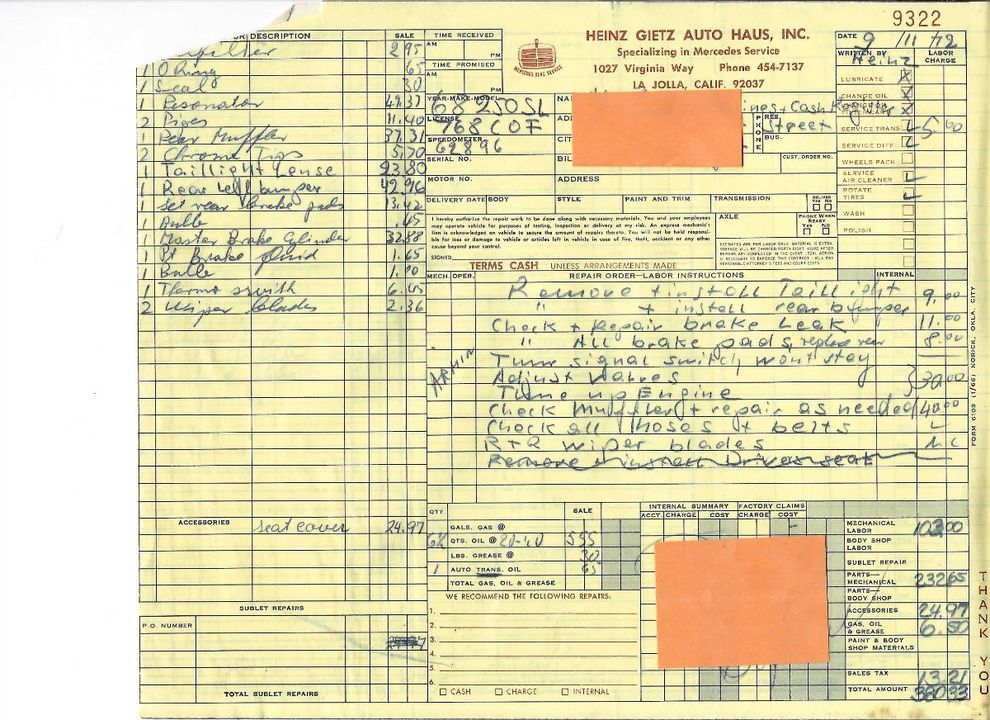 9322
HEINZ GIETZ AUTO HAUS, INC.
Specializing in Mercedes Service
1027 Virginia Way Phone 454-7137
LA JOLLA, CALIF. 92037
MERCEDES BENZ SERVICE
DATE 9/11/72
WRITTEN BY Heinz
LABOR CHARGE
LUBRICATE
CHANGE OIL
SERVICE TRANS 5 00
SERVICE DIFF
WHEELS PACK
SERVICE AIR CLEANER
ROTATE TIRES
WASH
POLISH
TIME RECEIVED
AM PM
TIME PROMISED
AM PM
YEAR-MAKE-MODEL
68 250SL
LICENSE
768 COF
SPEEDOMETER
62896
SERIAL NO.
MOTOR NO.
ADDRESS
RES.
Street
BUS.
PHONE
CUST. ORDER NO.
DELIVERY DATE BODY STYLE PAINT AND TRIM TRANSMISSION
AXLE
PHONE WHEN READY
YES NO
I hereby authorize the repair work to be done along with necessary materials. You and your employees
may operate vehicle for purposes of testing, inspection or delivery at my risk. An express mechanic's
lien is acknowledged on vehicle to secure the amount of repairs thereto. You will not be held responsible
for loss or damage to vehicle or articles left in vehicle in case of fire, theft, accident or any other
cause beyond your control.
SIGNED
TERMS CASH UNLESS ARRANGEMENTS MADE
OR DESCRIPTION SALE
filter 2.95
1 O Ring 65
1 Seal 30
1 Resonator 49.37
2 Pipes 11.40
1 Rear Muffler 37.31
2 Chrome Tips 5.70
1 Taillight Lense 23.80
1 Rear left bumper 49.96
1 Set rear brake pads 13.42
1 Bulb .45
1 Master Brake Cylinder 32.88
1 Pt Brake fluid 1.65
1 Bulb 1.10
1 Thermo switch 6.45
2 Wiper blades 2.36
ACCESSORIES seat cover 24.97
SUBLET REPAIRS
P.O. NUMBER
TOTAL SUBLET REPAIRS
MECH. OPER. REPAIR ORDER—LABOR INSTRUCTIONS INTERNAL
Remove + install Taillight 9.00
" + install rear bumper
Check + Repair brake Leak 11.00
" All brake pads, replace rear 8.00
ARMIN
Turn signal switch wont stay
Adjust Valves
Tune up Engine 30.00
Check Muffler + repair as needed 40.00
Check all hoses + belts
R+R Wiper blades NC
Remove + install Drivers seat
FORM 6109 (1/66) NORICK, OKLA. CITY
QTY. SALE
GALS. GAS @
6½ QTS. OIL @ 20-40 5 55
LBS. GREASE @ 30
1 AUTO TRANS. OIL 65
TOTAL GAS, OIL & GREASE
WE RECOMMEND THE FOLLOWING REPAIRS:
1.
2.
3.
4.
5.
6.
CASH CHARGE INTERNAL
INTERNAL SUMMARY FACTORY CLAIMS
ACCT. CHARGE COST CHARGE COST
MECHANICAL LABOR 103.00
BODY SHOP LABOR
SUBLET REPAIR
PARTS— MECHANICAL 232 65
PARTS— BODY SHOP
ACCESSORIES 24.97
GAS, OIL & GREASE 6.50
PAINT & BODY SHOP MATERIALS
SALES TAX 13.21
TOTAL AMOUNT 380 33
THANK YOU